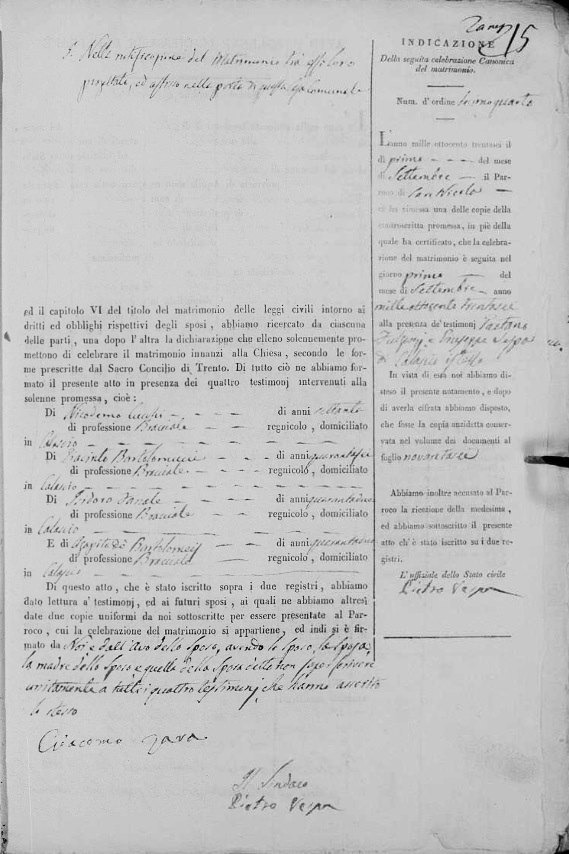 15
3. Nella notificazione del Matrimonio tra essoloro
ed affisso nella porta di questa
ed il capitolo VI del titolo del matrimonio delle leggi civili intorno ai
dritti ed obblighi rispettivi degli sposi, abbiamo ricercato da ciascuna
delle parti, una dopo l'altra la dichiarazione che elleno solennemente pro-
mettono di celebrare il matrimonio innanzi alla Chiesa, secondo le for-
me prescritte dal Sacro Concilio di Trento. Di tutto ciò ne abbiamo for-
mato il presente atto in presenza dei quattro testimonj intervenuti alla
solenne promessa, cioè:
Di Nicodemo di anni settanta
di professione Bracciale regnicolo, domiciliato
in Calascio
Di Giacinto Bartolomucci di anni quarantasei
di professione Bracciale regnicolo, domiciliato
in Calascio
Di Isidoro di anni quarantadue
di professione Bracciale regnicolo, domiciliato
in Calascio
E di Agapito de Bartolomeis di anni
di professione Bracciale regnicolo, domiciliato
in Calascio
Di questo atto, che è stato iscritto sopra i due registri, abbiamo
dato lettura a' testimonj, ed ai futuri sposi, ai quali ne abbiamo altresì
date due copie uniformi da noi sottoscritte per essere presentate al Par-
roco, cui la celebrazione del matrimonio si appartiene, ed indi si è fir-
mato da Noi e dall'avo dello Sposo, avendo lo Sposo, la Sposa,
la madre dello Sposo e quella della Sposa detto non saper scrivere
unitamente a tutti i quattro testimonj che hanno asserito
lo stesso
Giacomo Zara
Il Sindaco
Pietro Vespa
INDICAZIONE
Della seguita celebrazione Canonica
del matrimonio.
Num. d'ordine decimoquarto
L'anno mille ottocento trentasei il
dì primo del mese
di Settembre il Par-
roco di San Nicola
ci ha rimessa una delle copie della
controscritta promessa, in piè della
quale ha certificato, che la celebra-
zione del matrimonio è seguita nel
giorno primo del
mese di Settembre anno
mille ottocento trentasei
alla presenza da' testimonj Gaetano
e Giuseppe
di Calascio
In vista di essa noi abbiamo di-
steso il presente notamento, e dopo
di averla cifrata abbiamo disposto,
che fosse la copia anzidetta conser-
vata nel volume dei documenti al
foglio novantasei
Abbiamo inoltre accusato al Par-
roco la ricezione della medesima,
ed abbiamo sottoscritto il presente
atto ch'è stato iscritto su i due re-
gistri.
L'uffiziale dello Stato civile
Pietro Vespa